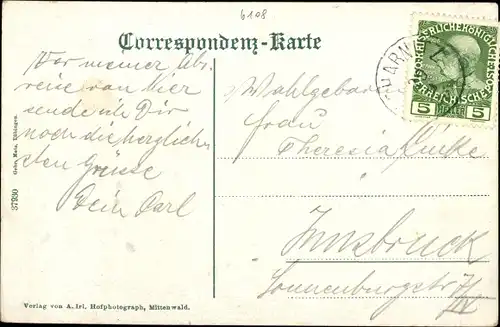 6108
Correspondenz-Karte
Vor meiner Ab-
reise von Hier
sende ich Dir
noch die herzlich-
sten Grüsse
Dein Carl
Wohlgeboren
Frau
Theresia
Innsbruck
Sonnenburgstr
KAISERLICHE KÖNIGLICHE ÖSTERREICHISCHE
5 5
Gebr. Metz, Tübingen.
37930
Verlag von A. Irl. Hofphotograph, Mittenwald.